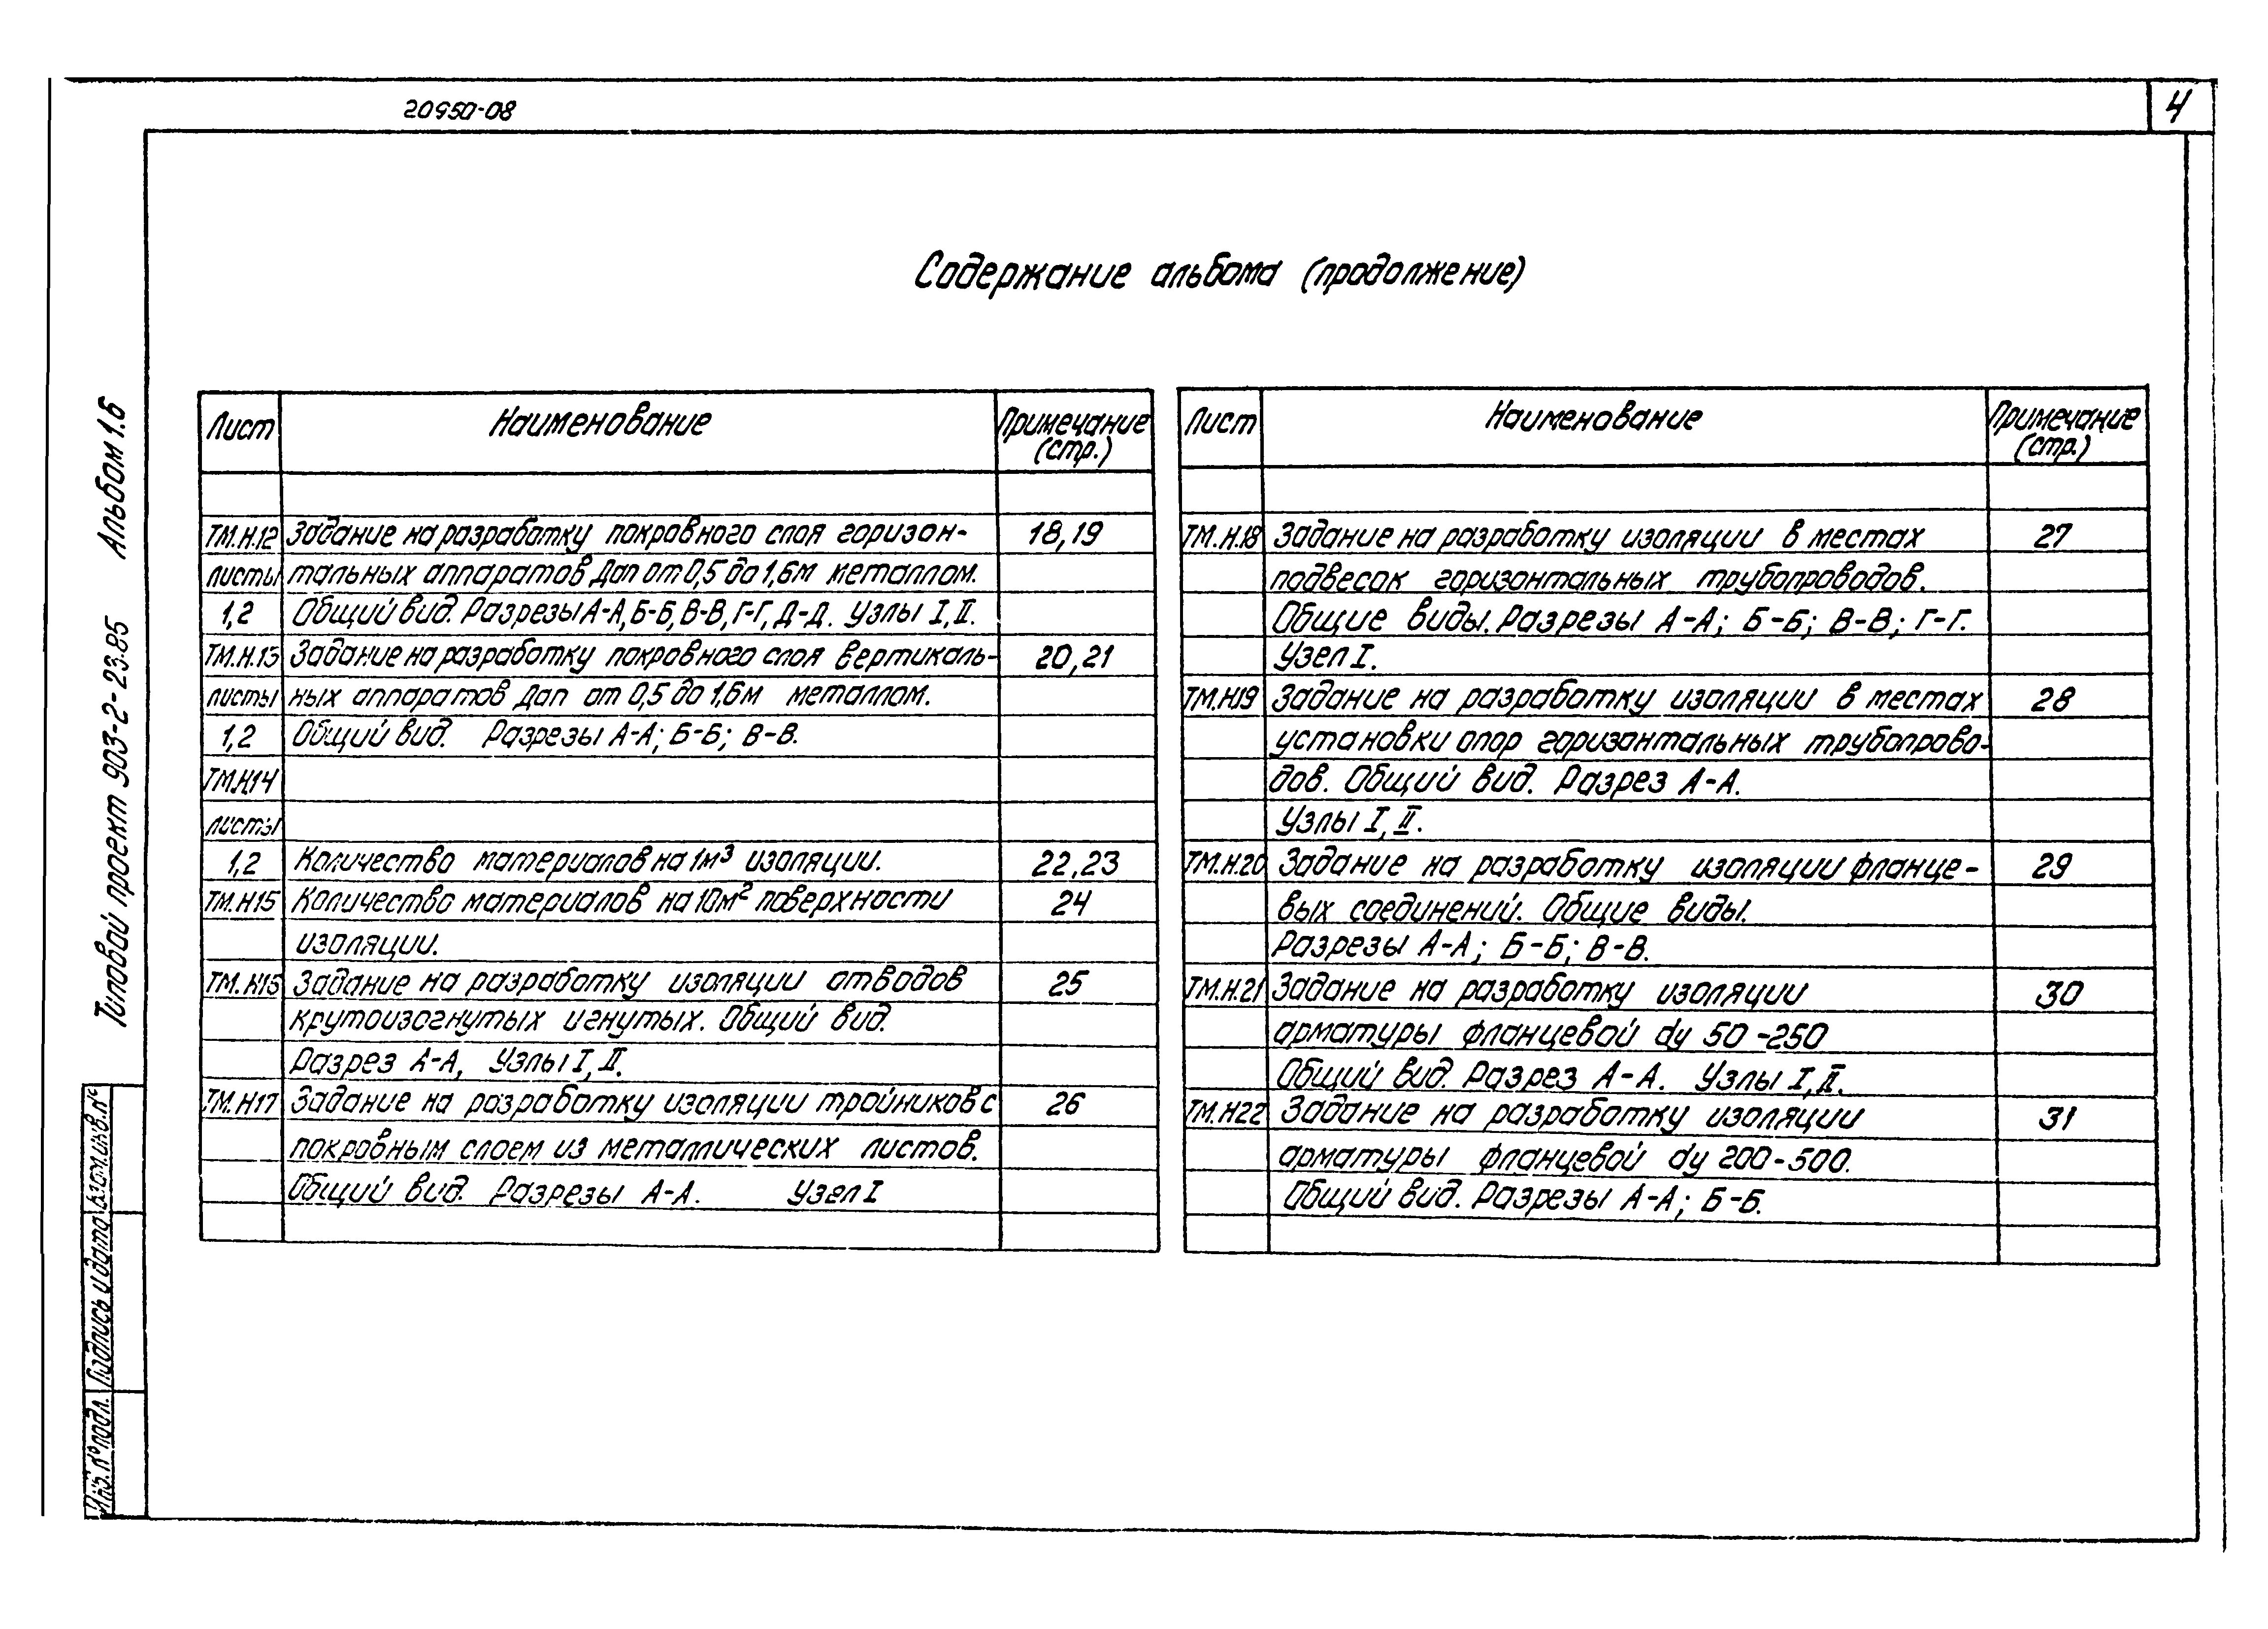 20950-08
4
Содержание альбома (продолжение)
Лист Наименование Примечание (стр.)
ТМ.Н.12 Задание на разработку покровного слоя горизон- 18,19
листы тальных аппаратов Дап от 0,5 до 1,6м металлом.
1,2 Общий вид. Разрезы А-А, Б-Б, В-В, Г-Г, Д-Д. Узлы I, II.
ТМ.Н.13 Задание на разработку покровного слоя вертикаль- 20,21
листы ных аппаратов Дап от 0,5 до 1,6м металлом.
1,2 Общий вид. Разрезы А-А; Б-Б; В-В.
ТМ.Н14
листы
1,2 Количество материалов на 1м³ изоляции. 22,23
ТМ.Н15 Количество материалов на 10м² поверхности 24
изоляции.
ТМ.Н16 Задание на разработку изоляции отводов 25
крутоизогнутых и гнутых. Общий вид.
Разрез А-А, Узлы I, II.
ТМ.Н17 Задание на разработку изоляции тройников с 26
покровным слоем из металлических листов.
Общий вид. Разрезы А-А. Узел I
Лист Наименование Примечание (стр.)
ТМ.Н.18 Задание на разработку изоляции в местах 27
подвесок горизонтальных трубопроводов.
Общие виды. Разрезы А-А; Б-Б; В-В; Г-Г.
Узел I.
ТМ.Н19 Задание на разработку изоляции в местах 28
установки опор горизонтальных трубопрово-
дов. Общий вид. Разрез А-А.
Узлы I, II.
ТМ.Н.20 Задание на разработку изоляции фланце- 29
вых соединений. Общие виды.
Разрезы А-А; Б-Б; В-В.
ТМ.Н.21 Задание на разработку изоляции 30
арматуры фланцевой dу 50-250
Общий вид. Разрез А-А. Узлы I, II.
ТМ.Н22 Задание на разработку изоляции 31
арматуры фланцевой dу 200-500.
Общий вид. Разрезы А-А; Б-Б.
Типовой проект 903-2-23.85 Альбом 1.6
Инв. № подл. Подпись и дата Взам. инв. №